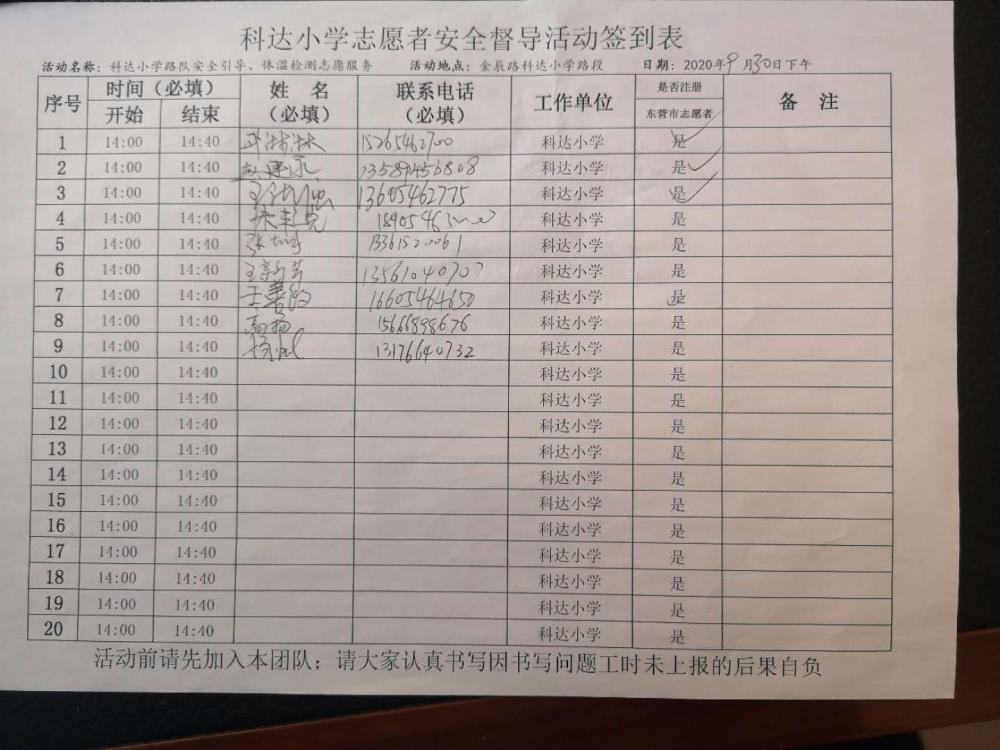 科达小学志愿者安全督导活动签到表
活动名称：科达小学路队安全引导、体温检测志愿服务 活动地点：金辰路科达小学路段 日期：2020年9月30日下午
序号 时间（必填） 姓 名（必填） 联系电话（必填） 工作单位 是否注册东营市志愿者 备 注
开始 结束
1 14:00 14:40 15265462700 科达小学 是
2 14:00 14:40 13589456808 科达小学 是
3 14:00 14:40 13605462775 科达小学 是
4 14:00 14:40 科达小学 是
5 14:00 14:40 13361520061 科达小学 是
6 14:00 14:40 13561040707 科达小学 是
7 14:00 14:40 16605464650 科达小学 是
8 14:00 14:40 高扬 15666898676 科达小学 是
9 14:00 14:40 13176640732 科达小学 是
10 14:00 14:40 科达小学 是
11 14:00 14:40 科达小学 是
12 14:00 14:40 科达小学 是
13 14:00 14:40 科达小学 是
14 14:00 14:40 科达小学 是
15 14:00 14:40 科达小学 是
16 14:00 14:40 科达小学 是
17 14:00 14:40 科达小学 是
18 14:00 14:40 科达小学 是
19 14:00 14:40 科达小学 是
20 14:00 14:40 科达小学 是
活动前请先加入本团队；请大家认真书写因书写问题工时未上报的后果自负